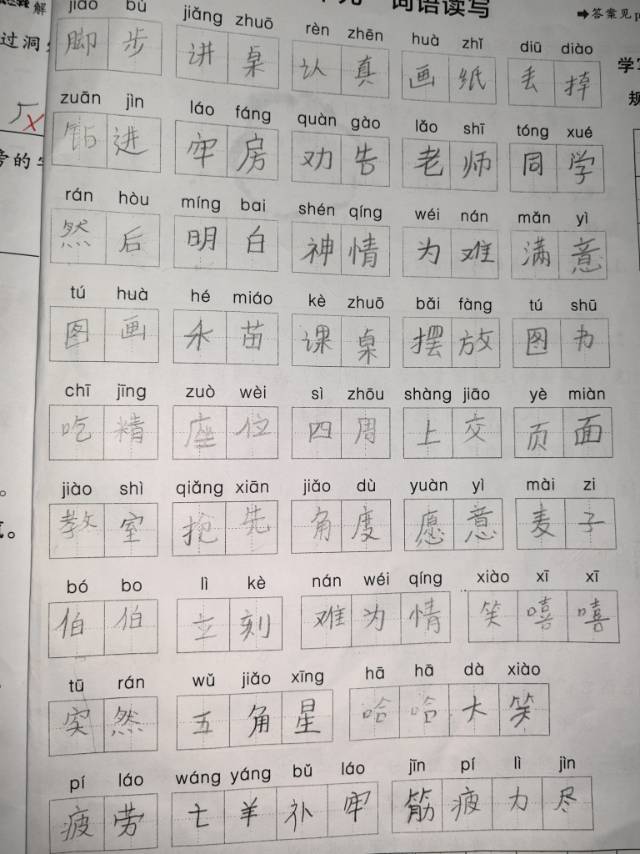 解 词语读写 ➡答案见
jiǎo bù jiǎng zhuō rèn zhēn huà zhǐ diū diào
过洞 脚步 讲桌 认真 画纸 丢掉 学
zuān jìn láo fáng quàn gào lǎo shī tóng xué 规
钻进 牢房 劝告 老师 同学
旁的
rán hòu míng bai shén qíng wéi nán mǎn yì
然后 明白 神情 为难 满意
tú huà hé miáo kè zhuō bǎi fàng tú shū
图画 禾苗 课桌 摆放 图书
chī jīng zuò wèi sì zhōu shàng jiāo yè miàn
吃精 座位 四周 上交 页面
jiào shì qiǎng xiān jiǎo dù yuàn yì mài zi
教室 抢先 角度 愿意 麦子
bó bo lì kè nán wéi qíng xiào xī xī
伯伯 立刻 难为情 笑嘻嘻
tū rán wǔ jiǎo xīng hā hā dà xiào
突然 五角星 哈哈大笑
pí láo wáng yáng bǔ láo jīn pí lì jìn
疲劳 亡羊补牢 筋疲力尽